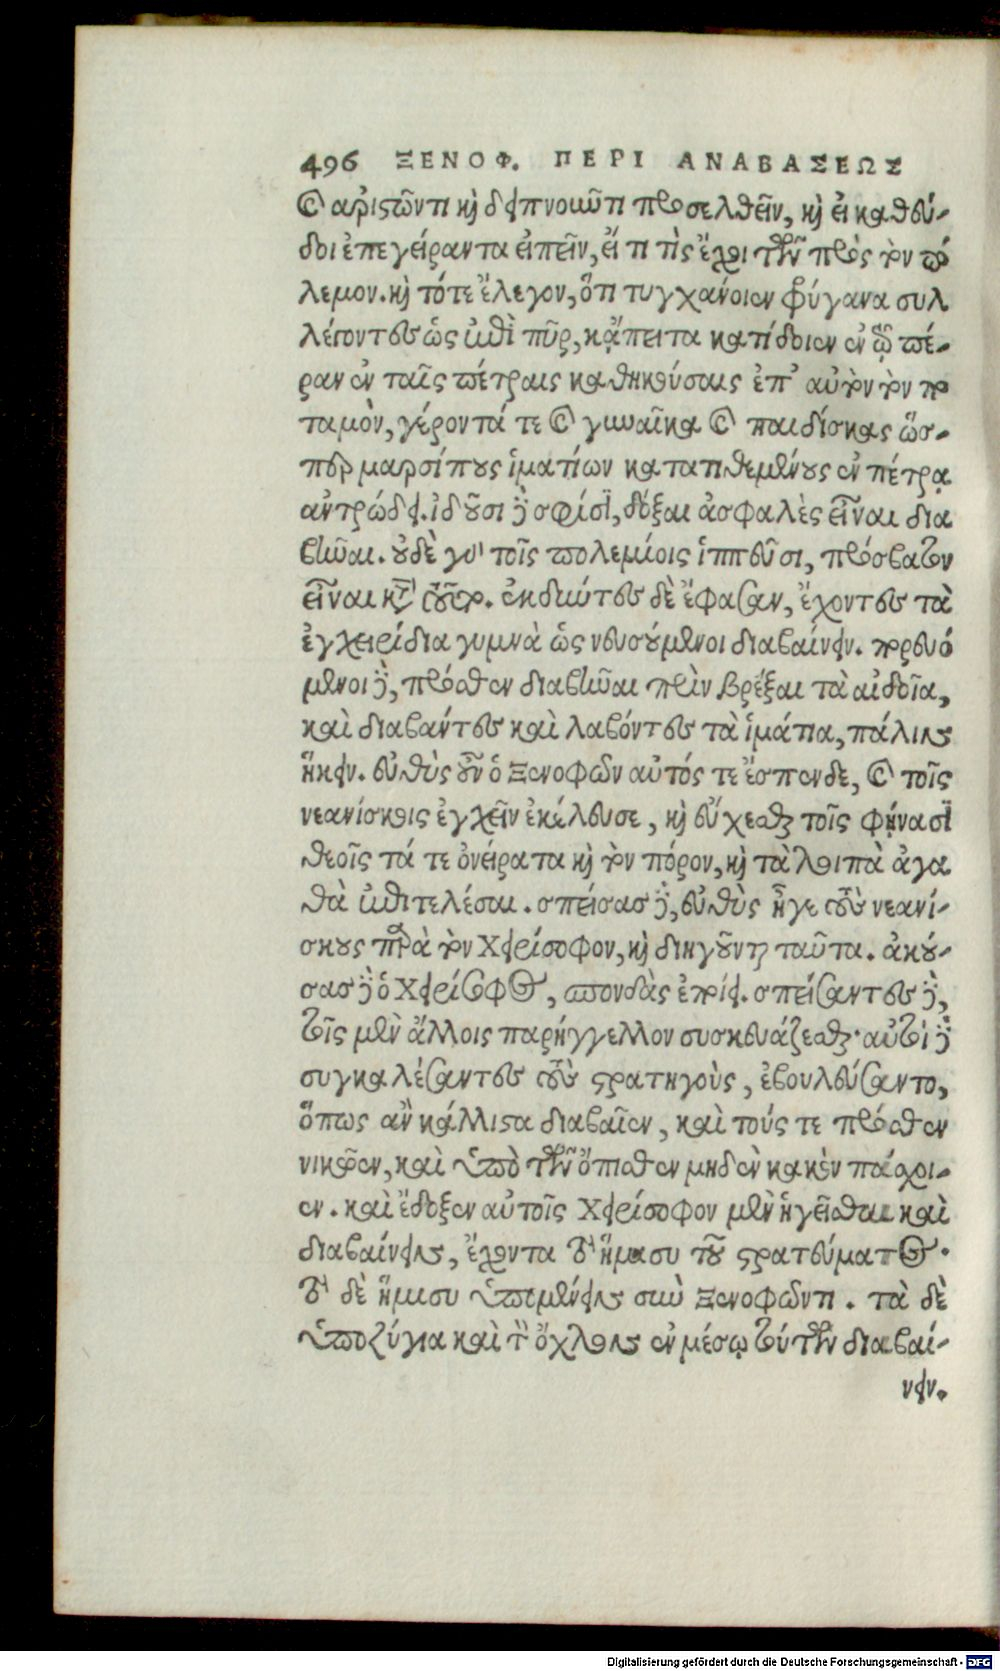 496 ΞΕΝΟΦ. ΠΕΡΙ ΑΝΑΒΑΣΕΩΣ
καὶ ἀριστῶντι καὶ δειπνοιῶντι προσελθεῖν, καὶ εἰ καθεύ-
δοι ἐπεγείραντα εἰπεῖν, εἴ τι τὶς ἔχοι τῶν πρὸς τὸν πό
λεμον. καὶ τότε ἔλεγον, ὅτι τυγχάνοιεν φρύγανα συλ
λέγοντες ὡς ἐπὶ πῦρ, κᾄπειτα κατίδοιεν ἐν τῷ πέ-
ραν ἐν ταῖς πέτραις καθηκούσαις ἐπ' αὐτὸν τὸν πο
ταμὸν, γέροντά τε καὶ γυναῖκα καὶ παιδίσκας ὥσ-
περ μαρσίπους ἱματίων κατατιθεμένους ἐν πέτρᾳ
ἀντρώδει. ἰδοῦσι δὲ σφίσι, δόξαι ἀσφαλὲς εἶναι δια
βῆναι. οὐδὲ γὰρ τοῖς πολεμίοις ἱππεῦσι, πρόσβατον
εἶναι κατὰ τοῦτο. ἐκδύντες δὲ ἔφασαν, ἔχοντες τὰ
ἐγχειρίδια γυμνὰ ὡς νευσούμενοι διαβαίνειν. πορευό
μενοι δὲ, πρόσθεν διαβῆναι πρὶν βρέξαι τὰ αἰδοῖα,
καὶ διαβάντες καὶ λαβόντες τὰ ἱμάτια, πάλιν
ἥκειν. εὐθὺς οὖν ὁ Ξενοφῶν αὐτός τε ἔσπενδε, καὶ τοῖς
νεανίσκοις ἐγχεῖν ἐκέλευσε, καὶ εὔχεσθαι τοῖς φήνασι
θεοῖς τά τε ὀνείρατα καὶ τὸν πόρον, καὶ τὰ λοιπὰ ἀγα
θὰ ἐπιτελέσαι. σπείσας δὲ, εὐθὺς ἦγε τοὺς νεανί-
σκους παρὰ τὸν Χειρίσοφον, καὶ διηγοῦνται ταῦτα. ἀκού-
σας δὲ ὁ Χειρίσοφος, σπονδὰς ἐποίει. σπείσαντες δὲ,
τοῖς μὲν ἄλλοις παρήγγελλον συσκευάζεσθαι· αὐτοὶ δὲ
συγκαλέσαντες τοὺς στρατηγοὺς, ἐβουλεύσαντο,
ὅπως ἂν κάλλιστα διαβαῖεν, καὶ τούς τε πρόσθεν
νικῷεν, καὶ ὑπὸ τῶν ὄπισθεν μηδὲν κακὸν πάσχοι-
εν. καὶ ἔδοξεν αὐτοῖς Χειρίσοφον μὲν ἡγεῖσθαι καὶ
διαβαίνειν, ἔχοντα τὸ ἥμισυ τοῦ στρατεύματος·
τὸ δὲ ἥμισυ ὑπομένειν σὺν Ξενοφῶντι. τὰ δὲ
ὑποζύγια καὶ τὸν ὄχλον ἐν μέσῳ τούτων διαβαί-
νειν.
Digitalisierung gefördert durch die Deutsche Forschungsgemeinschaft - DFG